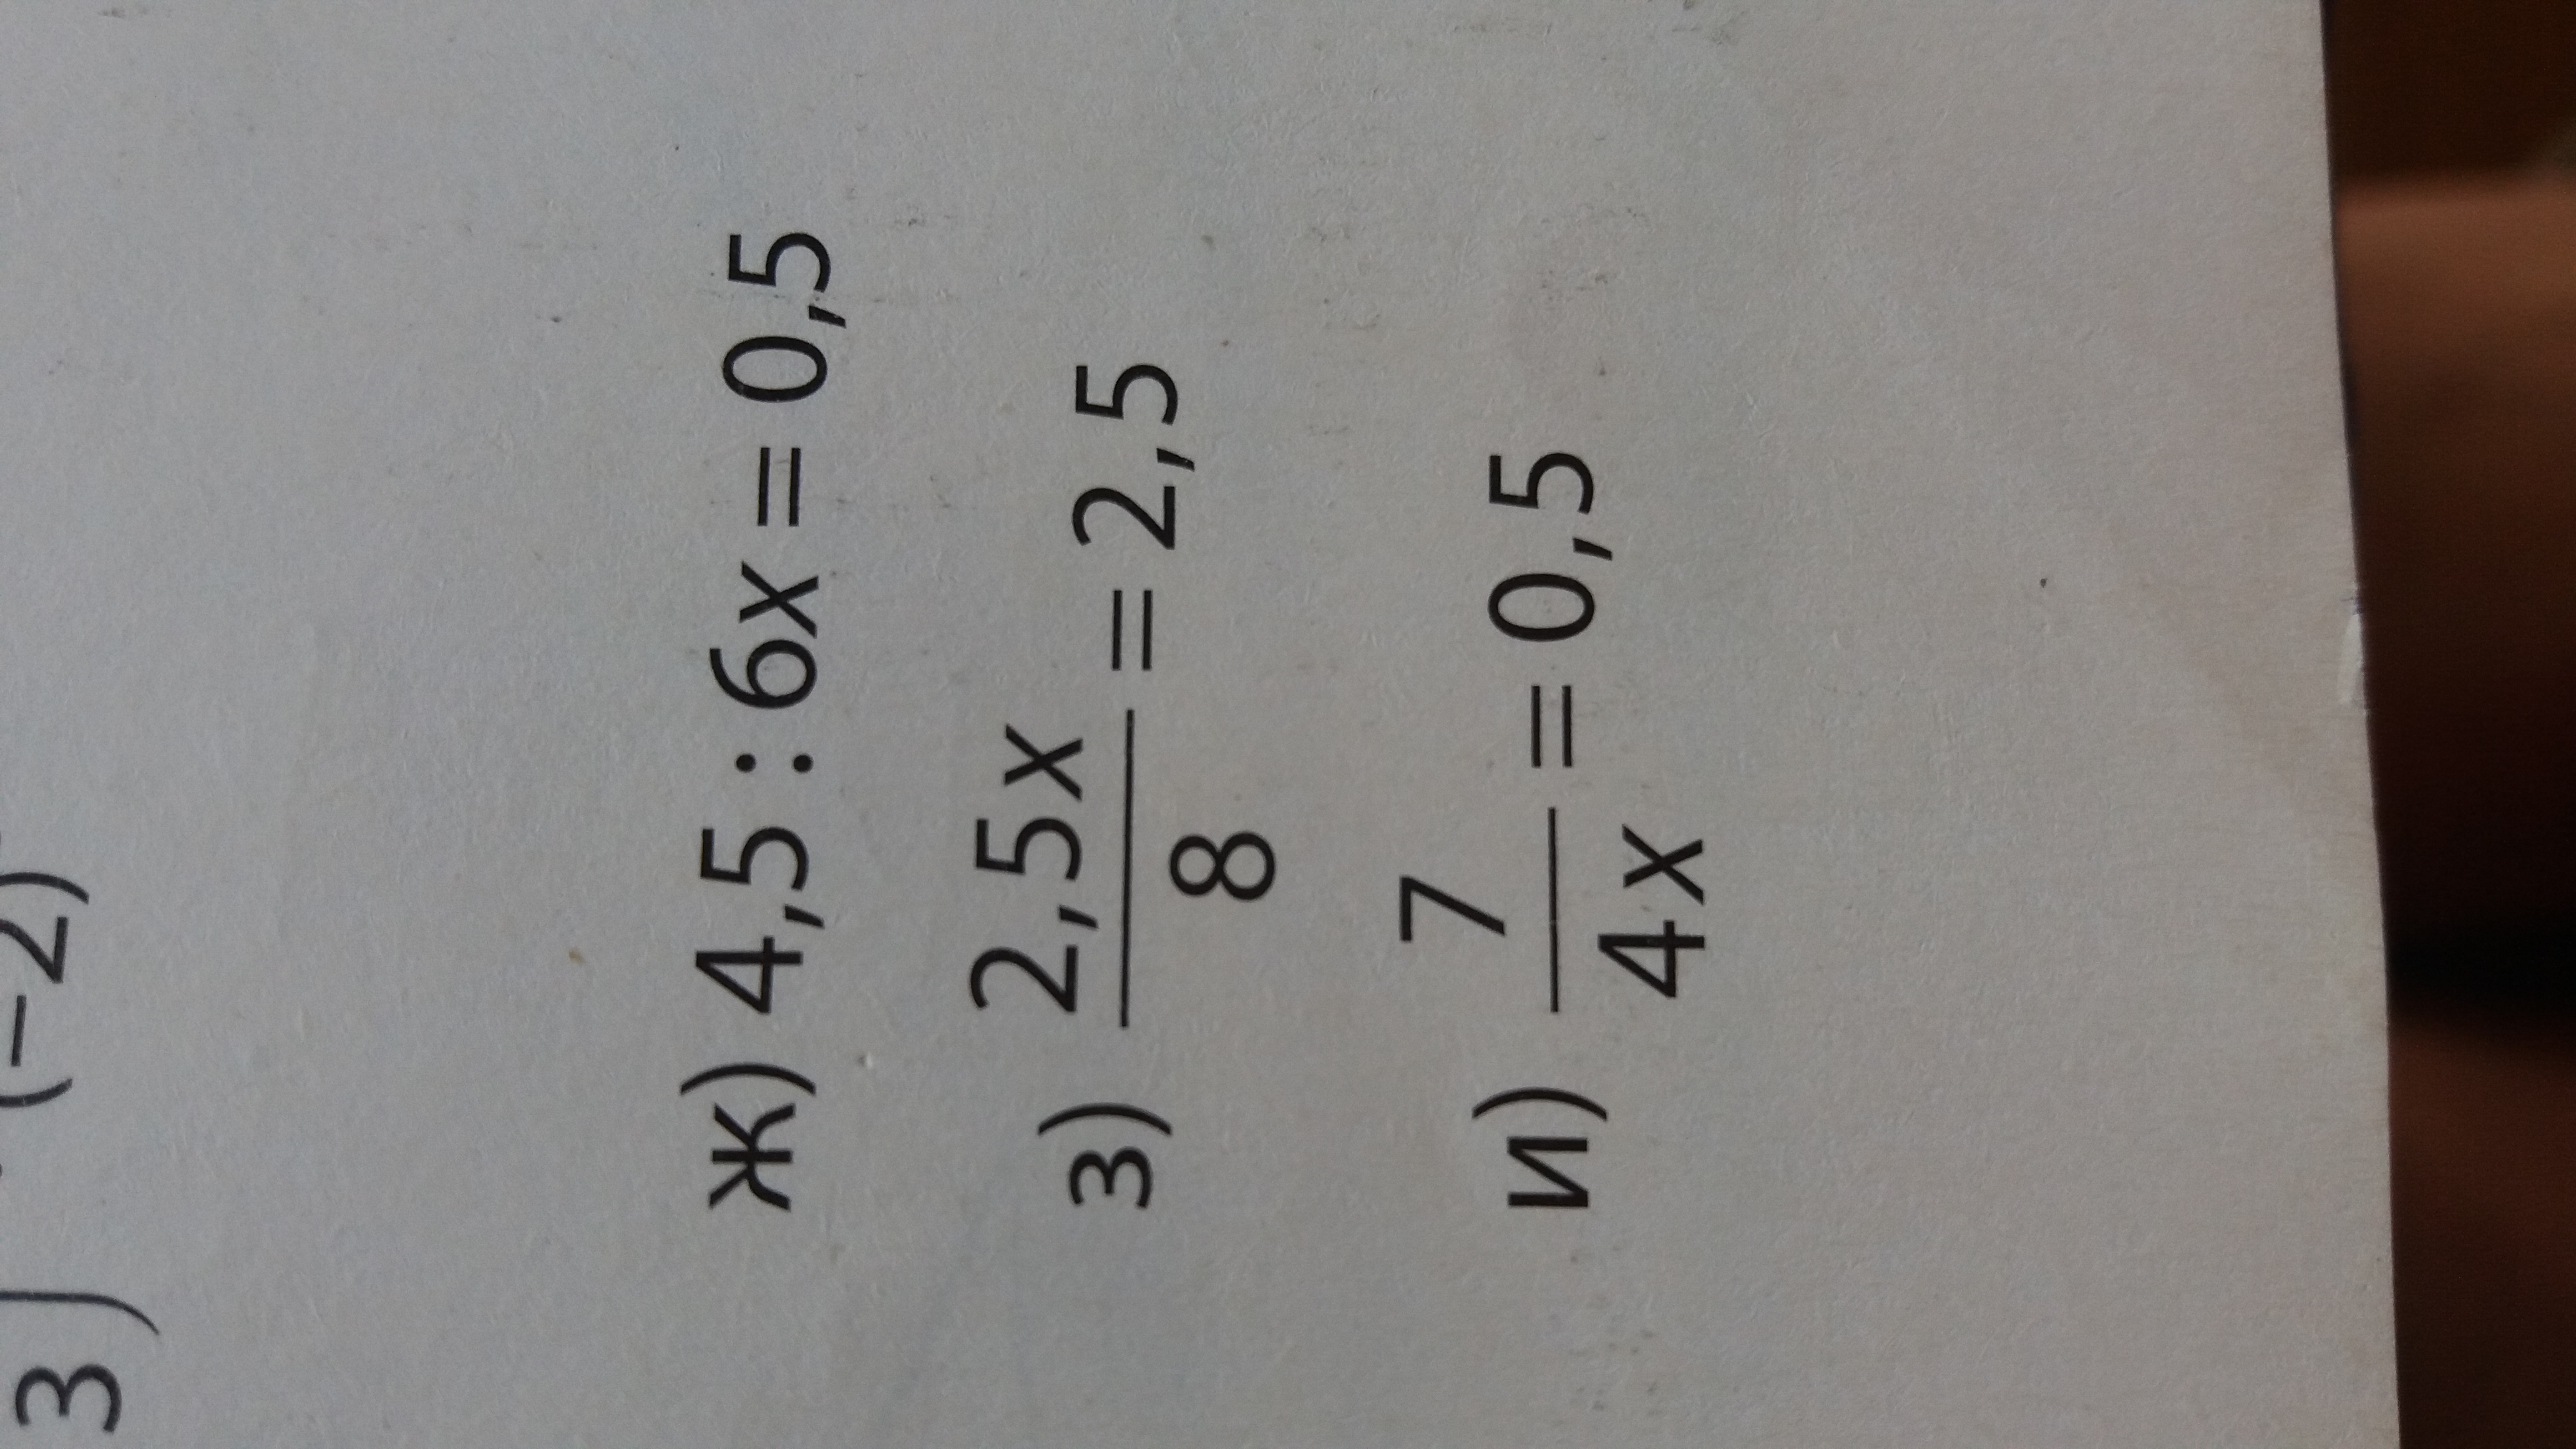 3) (−2)
ж) 4,5 : 6x = 0,5
з) 2,5x/8 = 2,5
и) 7/4x = 0,5